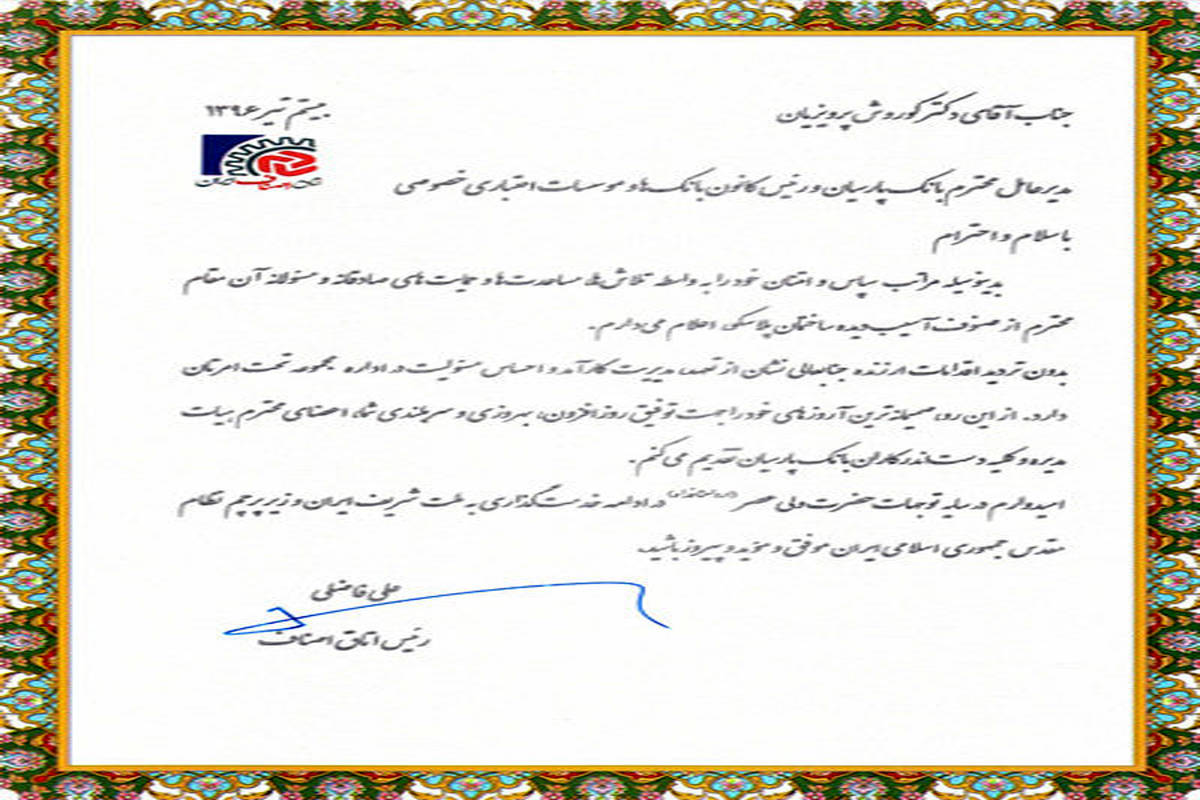 جناب آقای دکتر کوروش پرویزیان
بیستم تیر ۱۳۹۶
اتاق اصناف ایران
مدیرعامل محترم بانک پارسیان و رئیس کانون بانک‌ها و موسسات اعتباری خصوصی
با سلام و احترام
بدینوسیله مراتب سپاس و امتنان خود را به واسطه تلاش‌ها، مساعدت‌ها و حمایت‌های صادقانه و مسئولانه آن مقام
محترم از صنوف آسیب دیده ساختمان پلاسکو اعلام می‌دارم.
بدون تردید اقدامات ارزنده جنابعالی نشان از تعهد، مدیریت کارآمد و احساس مسئولیت در اداره مجموعه تحت امرتان
دارد. از این رو، صمیمانه‌ترین آرزوهای خود را جهت توفیق روزافزون، بهروزی و سربلندی شما، اعضای محترم هیات
مدیره و کلیه دست‌اندرکاران بانک پارسیان تقدیم می‌کنم.
امیدوارم در سایه توجهات حضرت ولی عصر در ادامه خدمت‌گذاری به ملت شریف ایران و زیر پرچم نظام
مقدس جمهوری اسلامی ایران موفق و مؤید و پیروز باشید.
علی فاضلی
رئیس اتاق اصناف